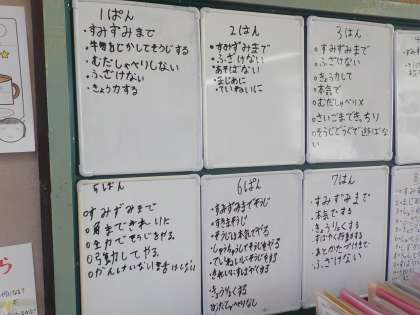 1ぱん
・すみずみまで
・牛きをどかしてそうじする
・むだしゃべりしない
・ふざけない
・きょう力する
2はん
・すみずみまで
・ふざけない
・あそばない
・まじめに
・ていねいに
3ぱん
○すみずみまで
○ふざけない
○きょう力して
○本気で
○むだしゃべり×
○さいごまできっちり
○そうじどうぐで遊ばない
5はん
○すみずみまで
○角まできれいに
○全力でそうじをやる
○かんけいない話はしない
6ぱん
・すみずみまでそうじ
・すきまそうじ
・そうじは本気でやる
・しゅうちゅうしてそうじをやる
・ていねいにそうじをやる
・きれいにすばやくする
・きょうりょくする
・むだしゃべりなし
7はん
・すみずみまで
・本気でする
・きょうりょくする
・すばやく行動する
・あとかたづけまで
・ふざけない